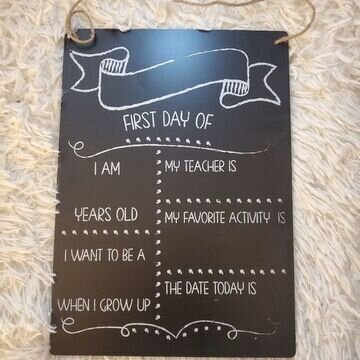 FIRST DAY OF
I AM
YEARS OLD
I WANT TO BE A
WHEN I GROW UP
MY TEACHER IS
MY FAVORITE ACTIVITY IS
THE DATE TODAY IS